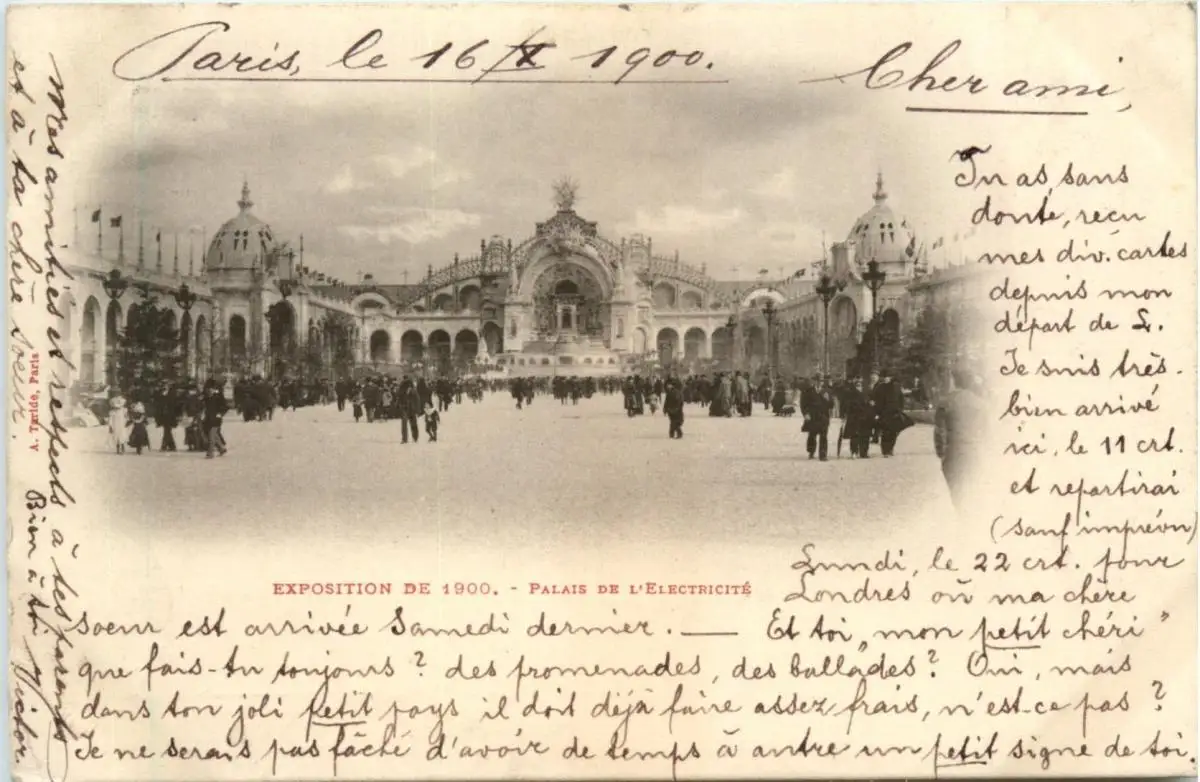 Paris, le 16/X 1900.
Cher ami,
Tu as, sans
doute, reçu
mes div. cartes
depuis mon
départ de L.
Je suis très-
bien arrivé
ici, le 11 crt.
et repartirai
(sauf imprévu)
Lundi, le 22 crt. pour
Londres où ma chère
soeur est arrivée Samedi dernier. — Et toi „mon petit chéri"
que fais-tu toujours? des promenades, des ballades? Oui, mais
dans ton joli petit pays il doit déjà faire assez frais, n'est-ce pas?
Je ne serais pas fâché d'avoir de temps à autre un petit signe de toi.
Mes amitiés et respects à tes parents
et à ta chère soeur.
Bien à toi Victor.
A. Taride, Paris
EXPOSITION DE 1900. - PALAIS DE L'ELECTRICITÉ